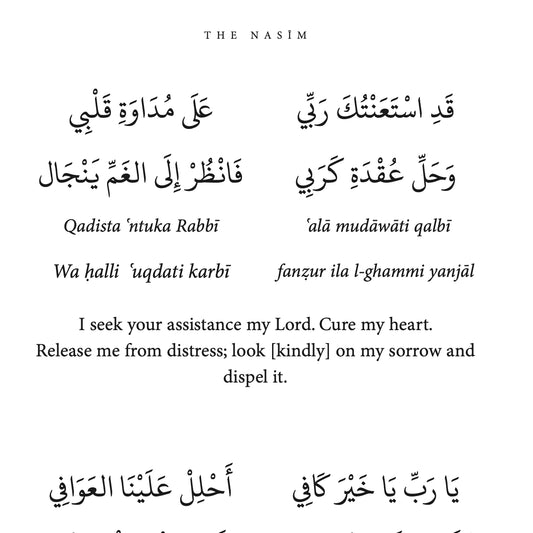 THE NASĪM
قَدِ اسْتَعَنْتُكَ رَبِّي عَلَى مُدَاوَةِ قَلْبِي
وَحَلِّ عُقْدَةِ كَرَبِي فَانْظُرْ إِلَى الغَمِّ يَنْجَال
Qadista ʿntuka Rabbī ʿalā mudāwāti qalbī
Wa ḥalli ʿuqdati karbī fanẓur ila l-ghammi yanjāl
I seek your assistance my Lord. Cure my heart.
Release me from distress; look [kindly] on my sorrow and
dispel it.
يَا رَبِّ يَا خَيْرَ كَافِي أَحْلِلْ عَلَيْنَا العَوَافِي